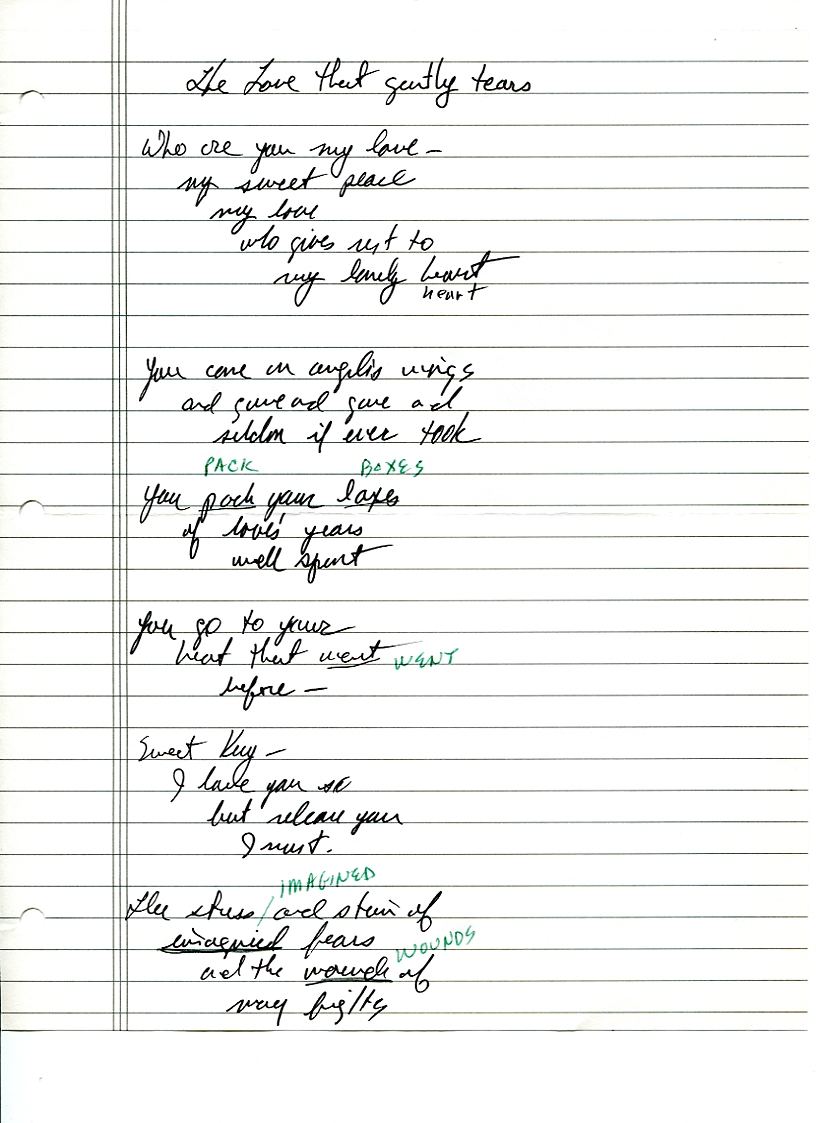 The Love that gently tears
Who are you my love –
my sweet peace
my love
who gives rest to
my lonely heart
heart
You came on angel's wings
and gave and gave and
seldom if ever took
PACK BOXES
You pack your boxes
of love's years
well spent
you go to your
heart that went WENT
before –
Sweet –
I love you so
but release you
I must.
IMAGINED
The stress / and strain of
imagined fears
WOUNDS
and the wounds of
many fights